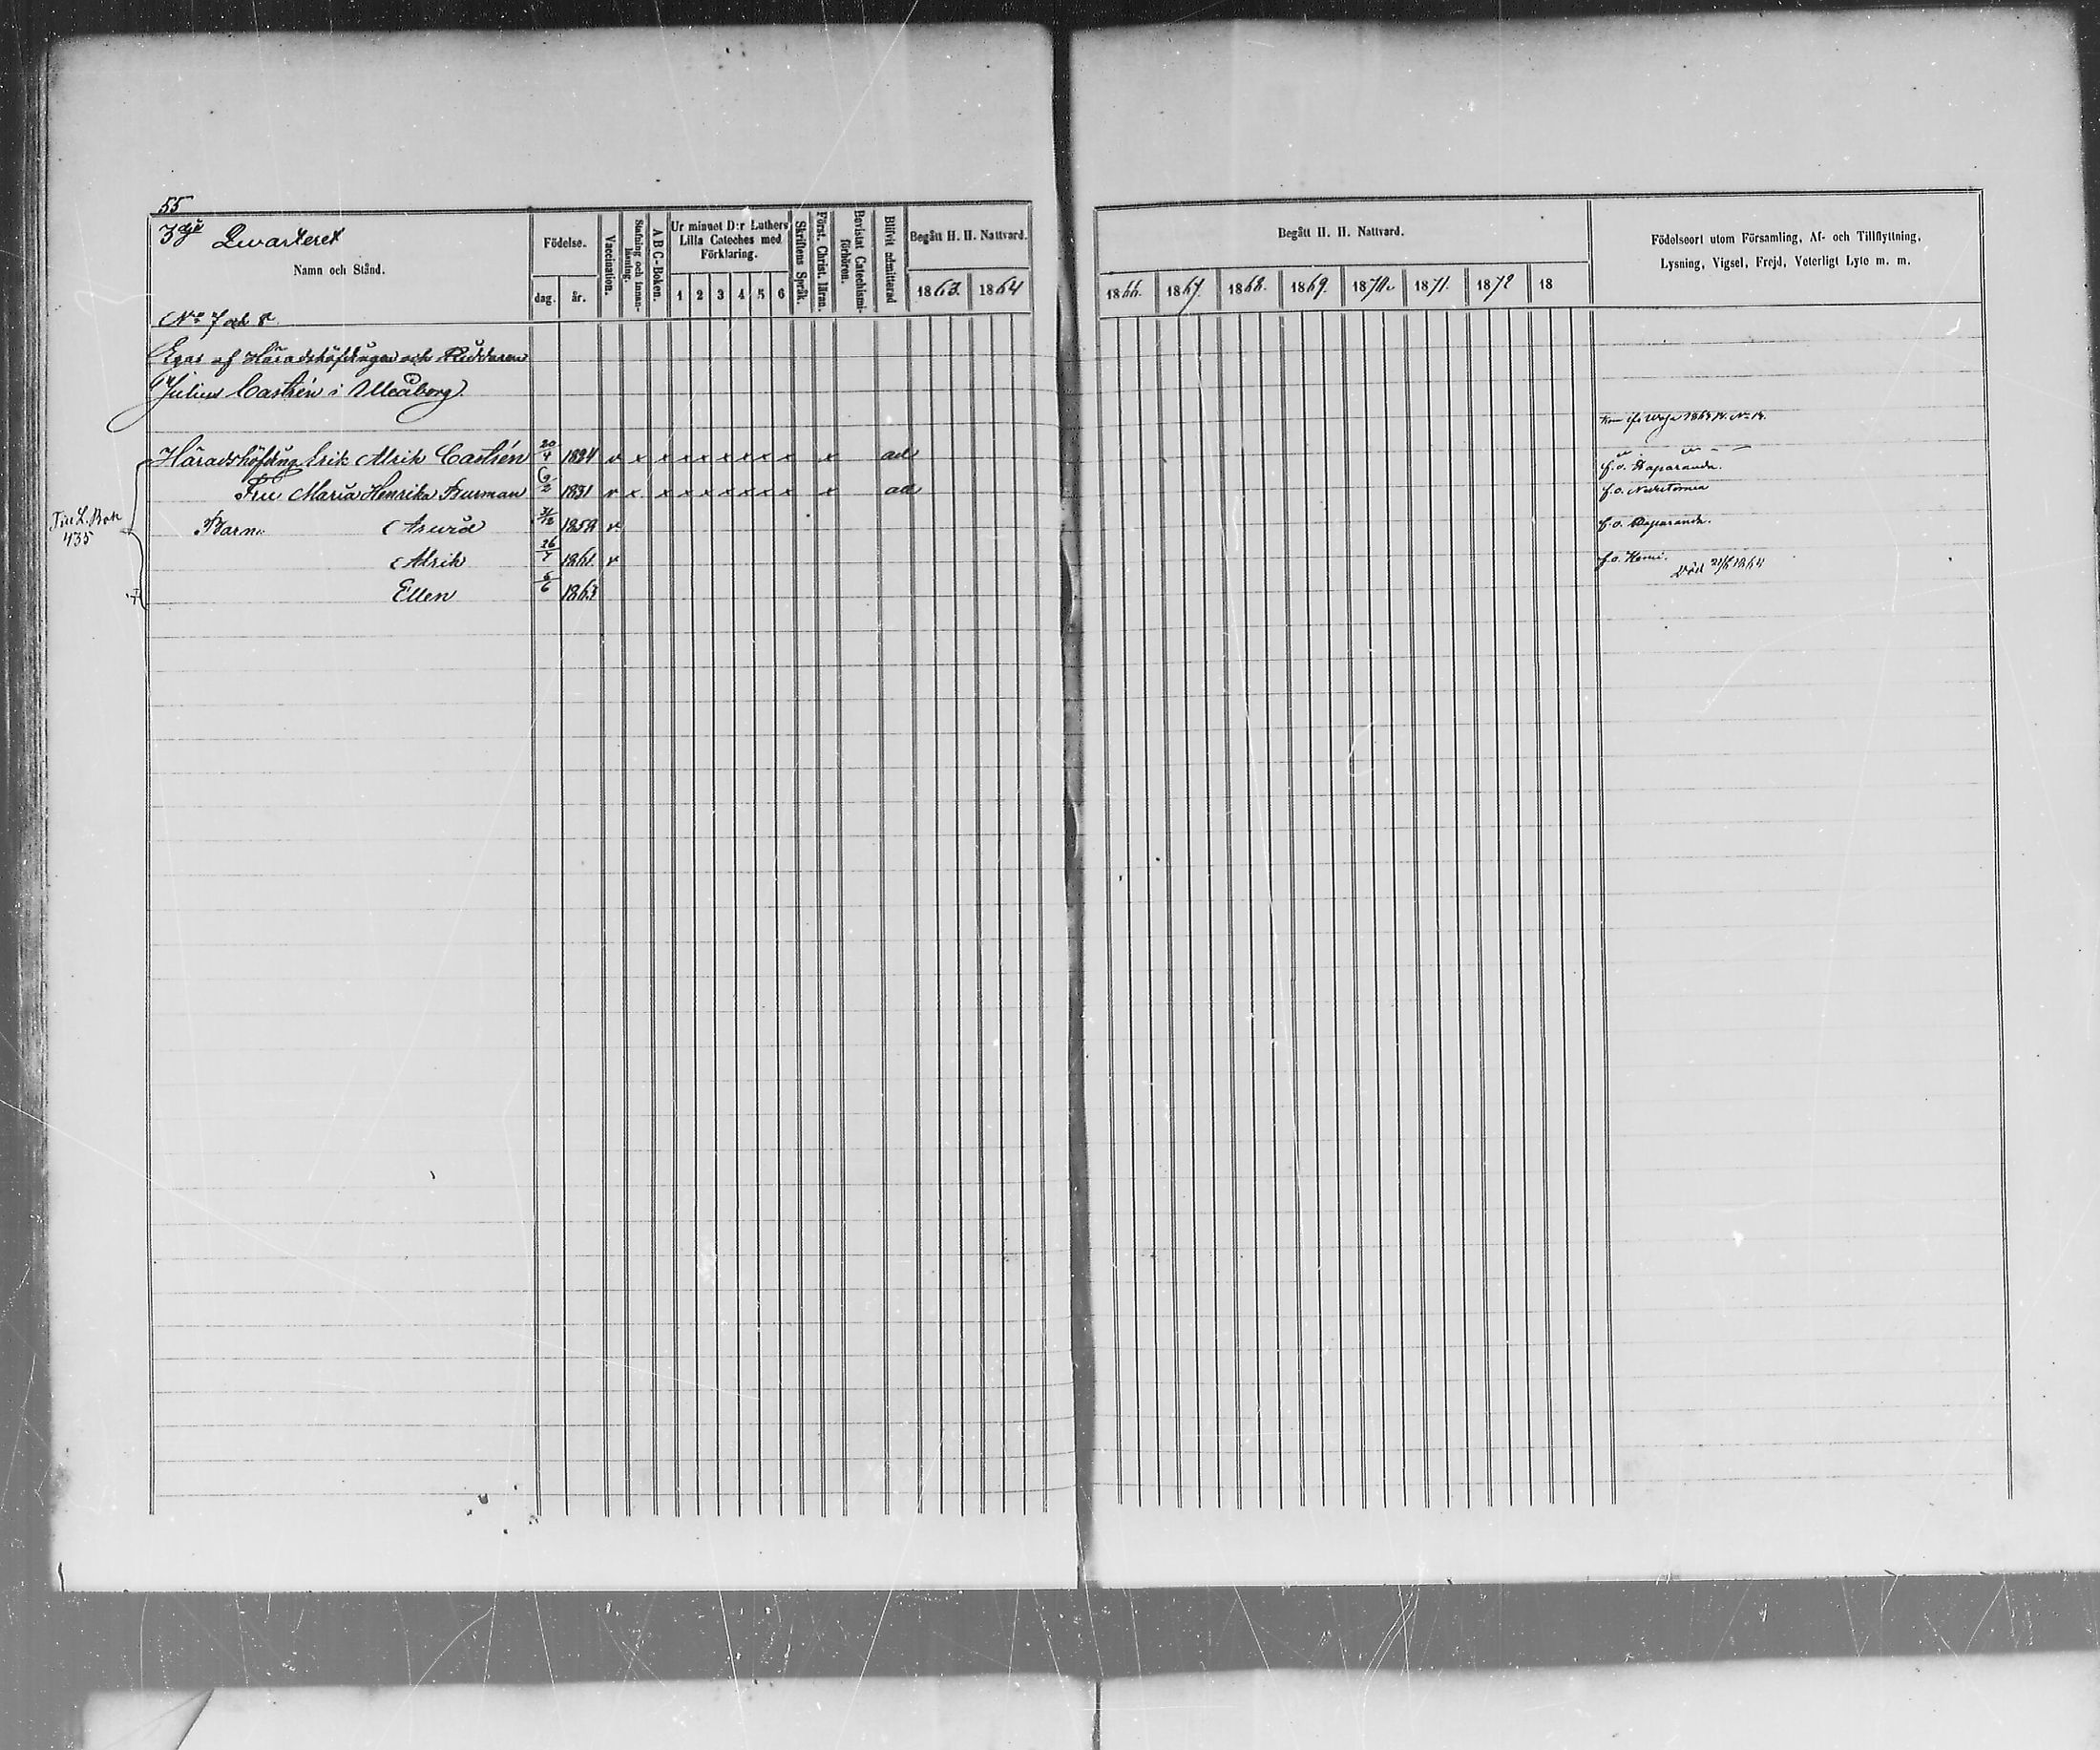 55
3dje Qwarteret
Namn och Stånd.
Födelse.
dag. år.
Vaccination.
Stafning och innanläsning.
A B C-Boken.
Ur minnet D:r Luthers Lilla Cateches med Förklaring.
1 2 3 4 5 6
Skriftens Språk.
Först. Christ. läran.
Bevistat Catechismiförhören.
Blifvit admitterad
Begått H. H. Nattvard.
1863. 1864
Begått H. H. Nattvard.
1866. 1867. 1868. 1869. 1870. 1871. 1872 18
Födelseort utom Församling, Af- och Tillflyttning,
Lysning, Vigsel, Frejd, Veterligt Lyte m. m.
No 7 och 8.
Egas af Häradshöfdingen och Riddaren
Julius Castrén i Uleåborg.
Häradshöfding Erik Alrik Castrén 20/4 1824 v x x x x x x x x x ad f. o. Haparanda.
Fru Maria Henrika Burman 6/2 1831 v x x x x x x x x x ad f. o. Nedertornea
Till L. Bok
435
Barn: 31/12 1859 v. f. o. Haparanda.
Alrik 26/7 1861 v f. o. Kemi.
+ Ellen 6/6 1863 Död